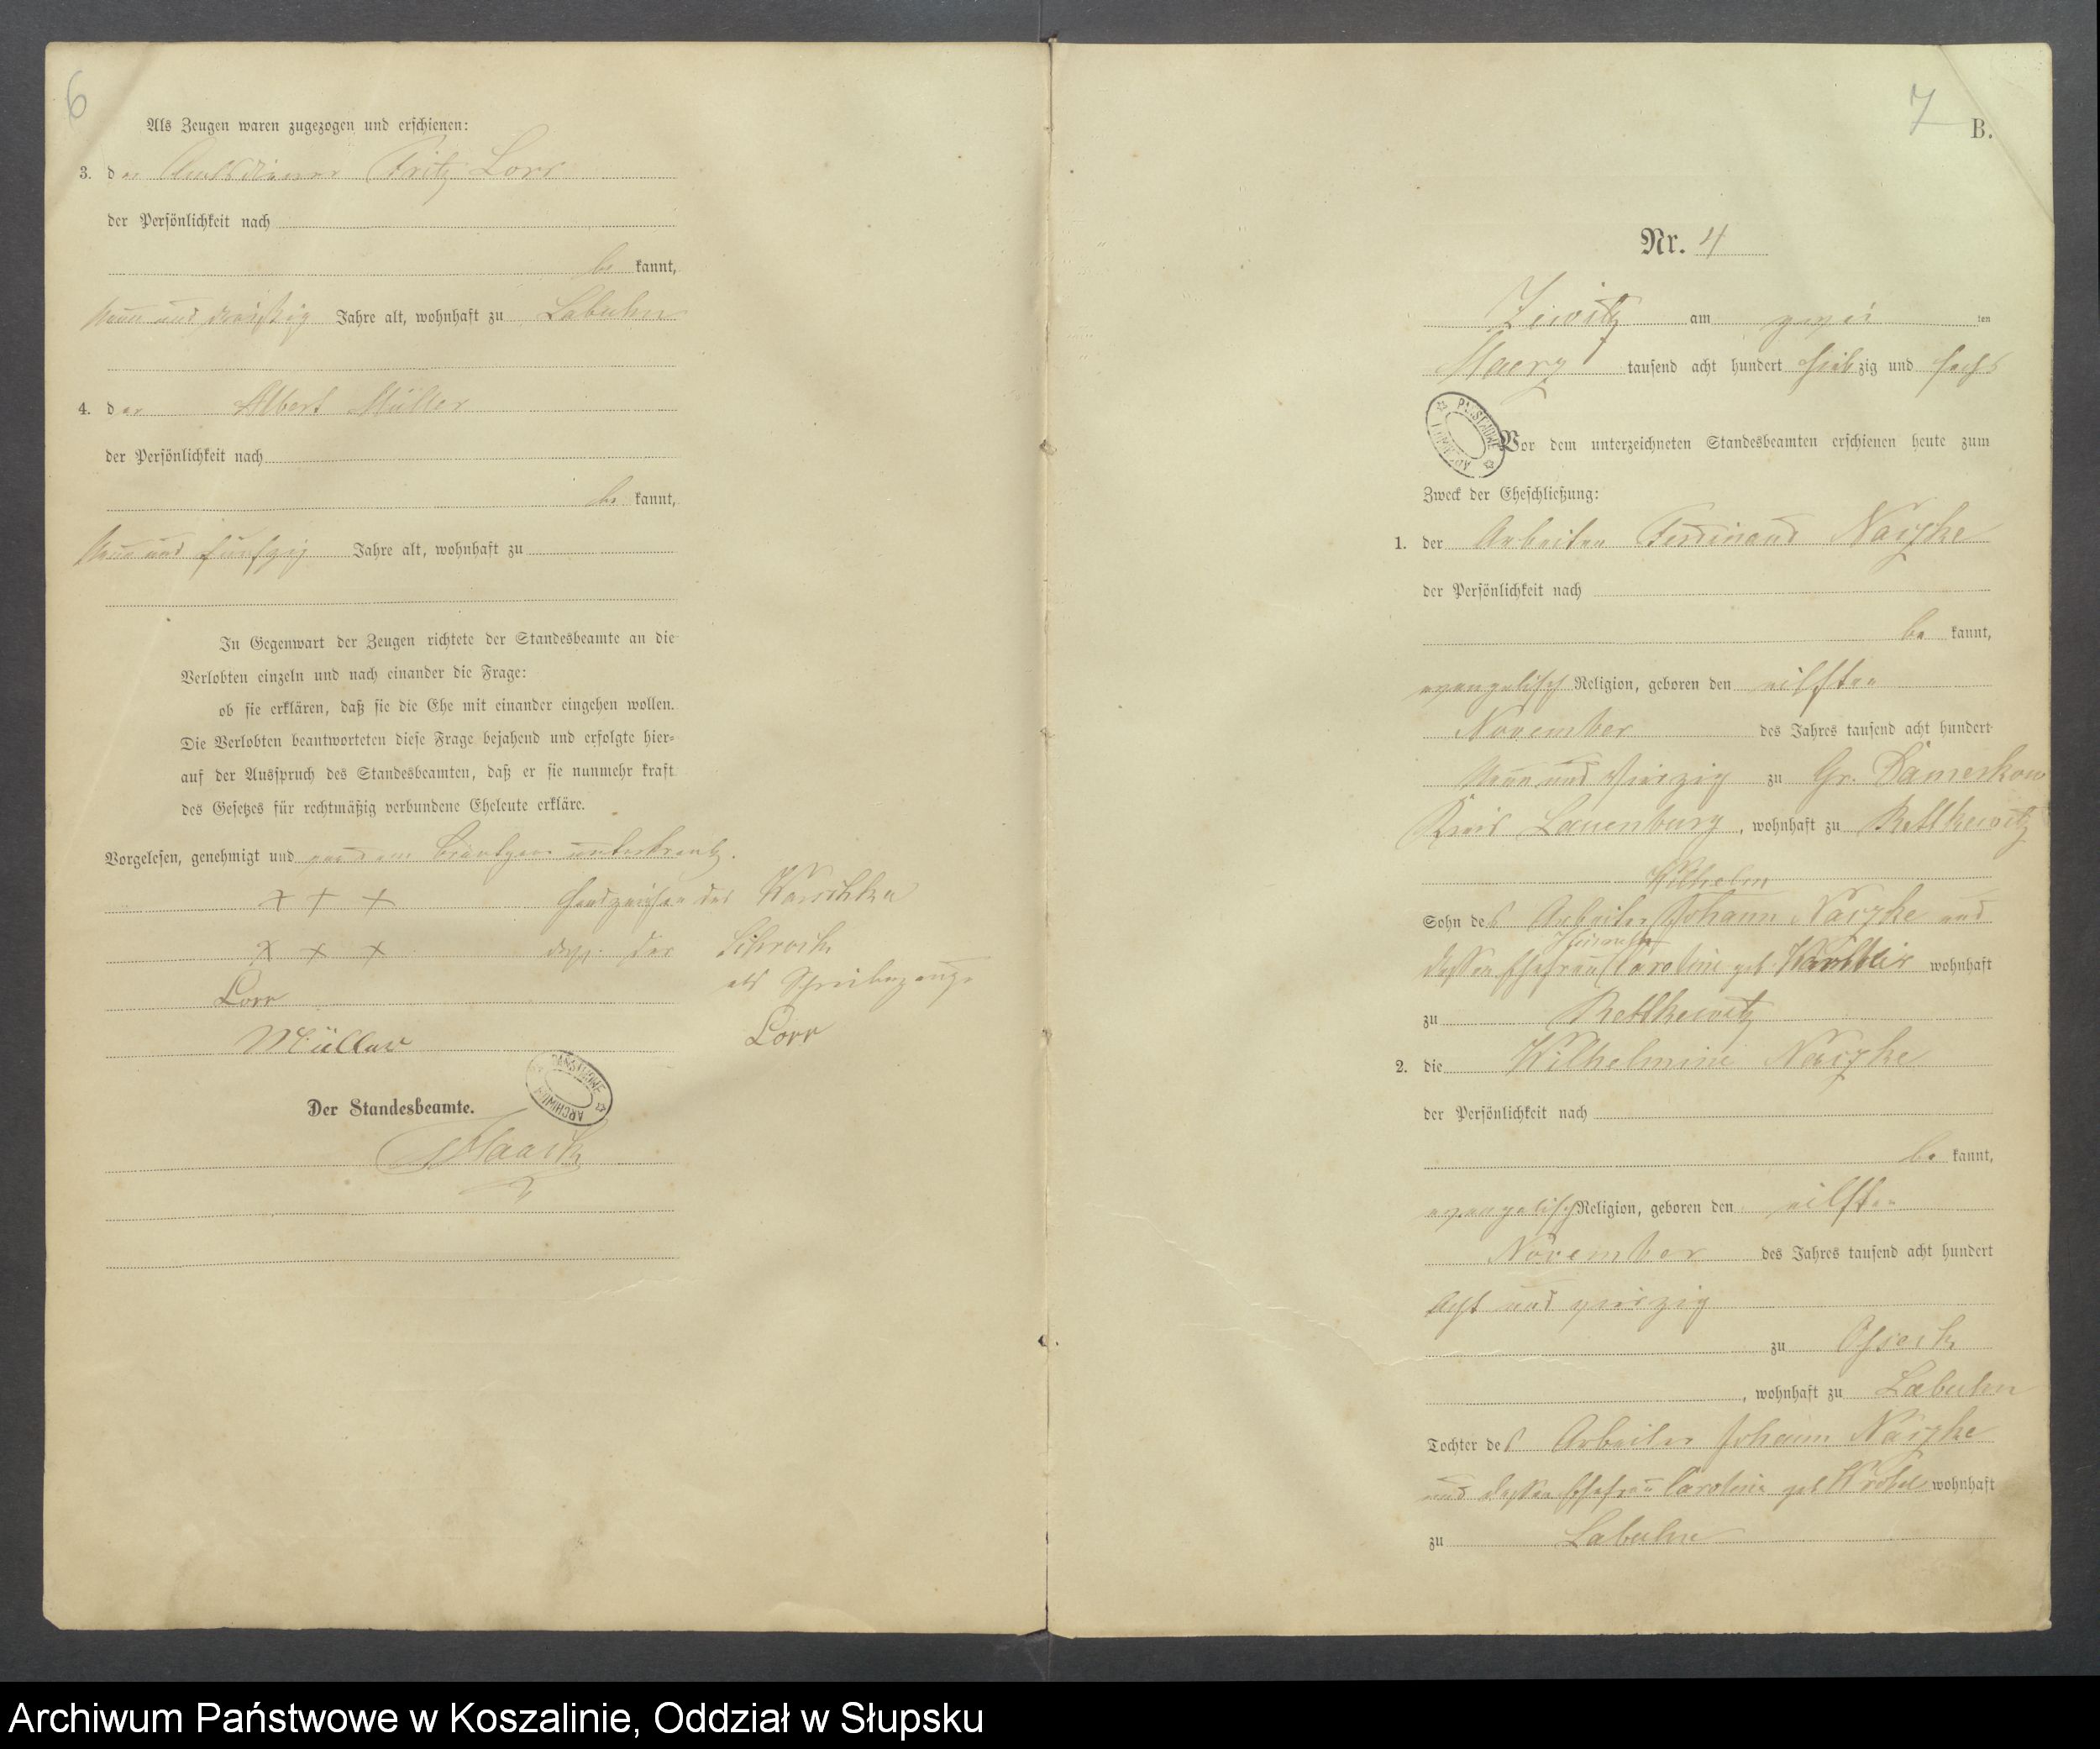 6
Als Zeugen waren zugezogen und erschienen:
3. der Amtsdiener Fritz Lorr
der Persönlichkeit nach
be kannt,
Neun und dreißig Jahre alt, wohnhaft zu Labuhn
4. der Albert Müller
der Persönlichkeit nach
be kannt,
Neun und funfzig Jahre alt, wohnhaft zu
In Gegenwart der Zeugen richtete der Standesbeamte an die
Verlobten einzeln und nach einander die Frage:
ob sie erklären, daß sie die Ehe mit einander eingehen wollen.
Die Verlobten beantworteten diese Frage bejahend und erfolgte hier=
auf der Ausspruch des Standesbeamten, daß er sie nunmehr kraft
des Gesetzes für rechtmäßig verbundene Eheleute erkläre.
Vorgelesen, genehmigt und unterkreuzt.
+ + + Handzeichen des
+ + + der Schrock
als Schreibzeuge
Lorr
Müller Lorr
Der Standesbeamte.
7
B.
Nr. 4
Zewitz am zwei ten
Maerz tausend acht hundert siebzig und sechs
Vor dem unterzeichneten Standesbeamten erschienen heute zum
Zweck der Eheschließung:
1. der Arbeiter Ferdinand Naczke
der Persönlichkeit nach
be kannt,
evangelisch Religion, geboren den eilften
November des Jahres tausend acht hundert
Neun und vierzig zu Gr. Damerkow
Kreis Lauenburg, wohnhaft zu Rettkewitz
Wilhelm
Sohn des Arbeiter Johann Naczke und
dessen Ehefrau Caroline geb. wohnhaft
zu Rettkewitz
2. die Wilhelmine Naczke
der Persönlichkeit nach
be kannt,
evangelisch Religion, geboren den eilften
November des Jahres tausend acht hundert
Acht und vierzig
zu Osseck
, wohnhaft zu Labuhn
Tochter des Arbeiter Johann Naczke
und dessen Ehefrau Caroline geb wohnhaft
zu Labuhn
PAŃSTWOWE ARCHIWUM
Archiwum Państwowe w Koszalinie, Oddział w Słupsku